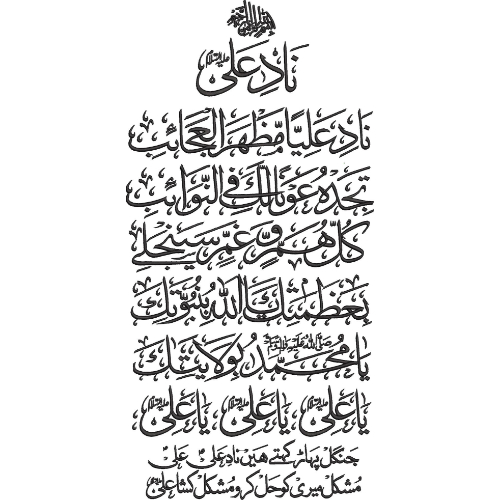 بسم الله الرحمن الرحيم
نَادِ عَلِیؑ
نَادِ عَلِيًّا مَّظْهَرَ الْعَجَائِبِ
تَجِدْهُ عَوْنًا لَّكَ فِي النَّوَائِبِ
كُلُّ هَمٍّ وَّ غَمٍّ سَيَنْجَلِي
بِعَظَمَتِكَ يَا اللهُ بِنُبُوَّتِكَ
يَا مُحَمَّدُ صَلَّى اللهُ عَلَيْهِ وَآلِهِ وَسَلَّمَ بِوَلَايَتِكَ
يَا عَلِیُّؑ، يَا عَلِیُّؑ، يَا عَلِیُّؑ
جنگل پہاڑ کہتے ہیں نادِ علیؑ علیؑ
مشکل میری کو حل کرو مشکل کشا علیؑ